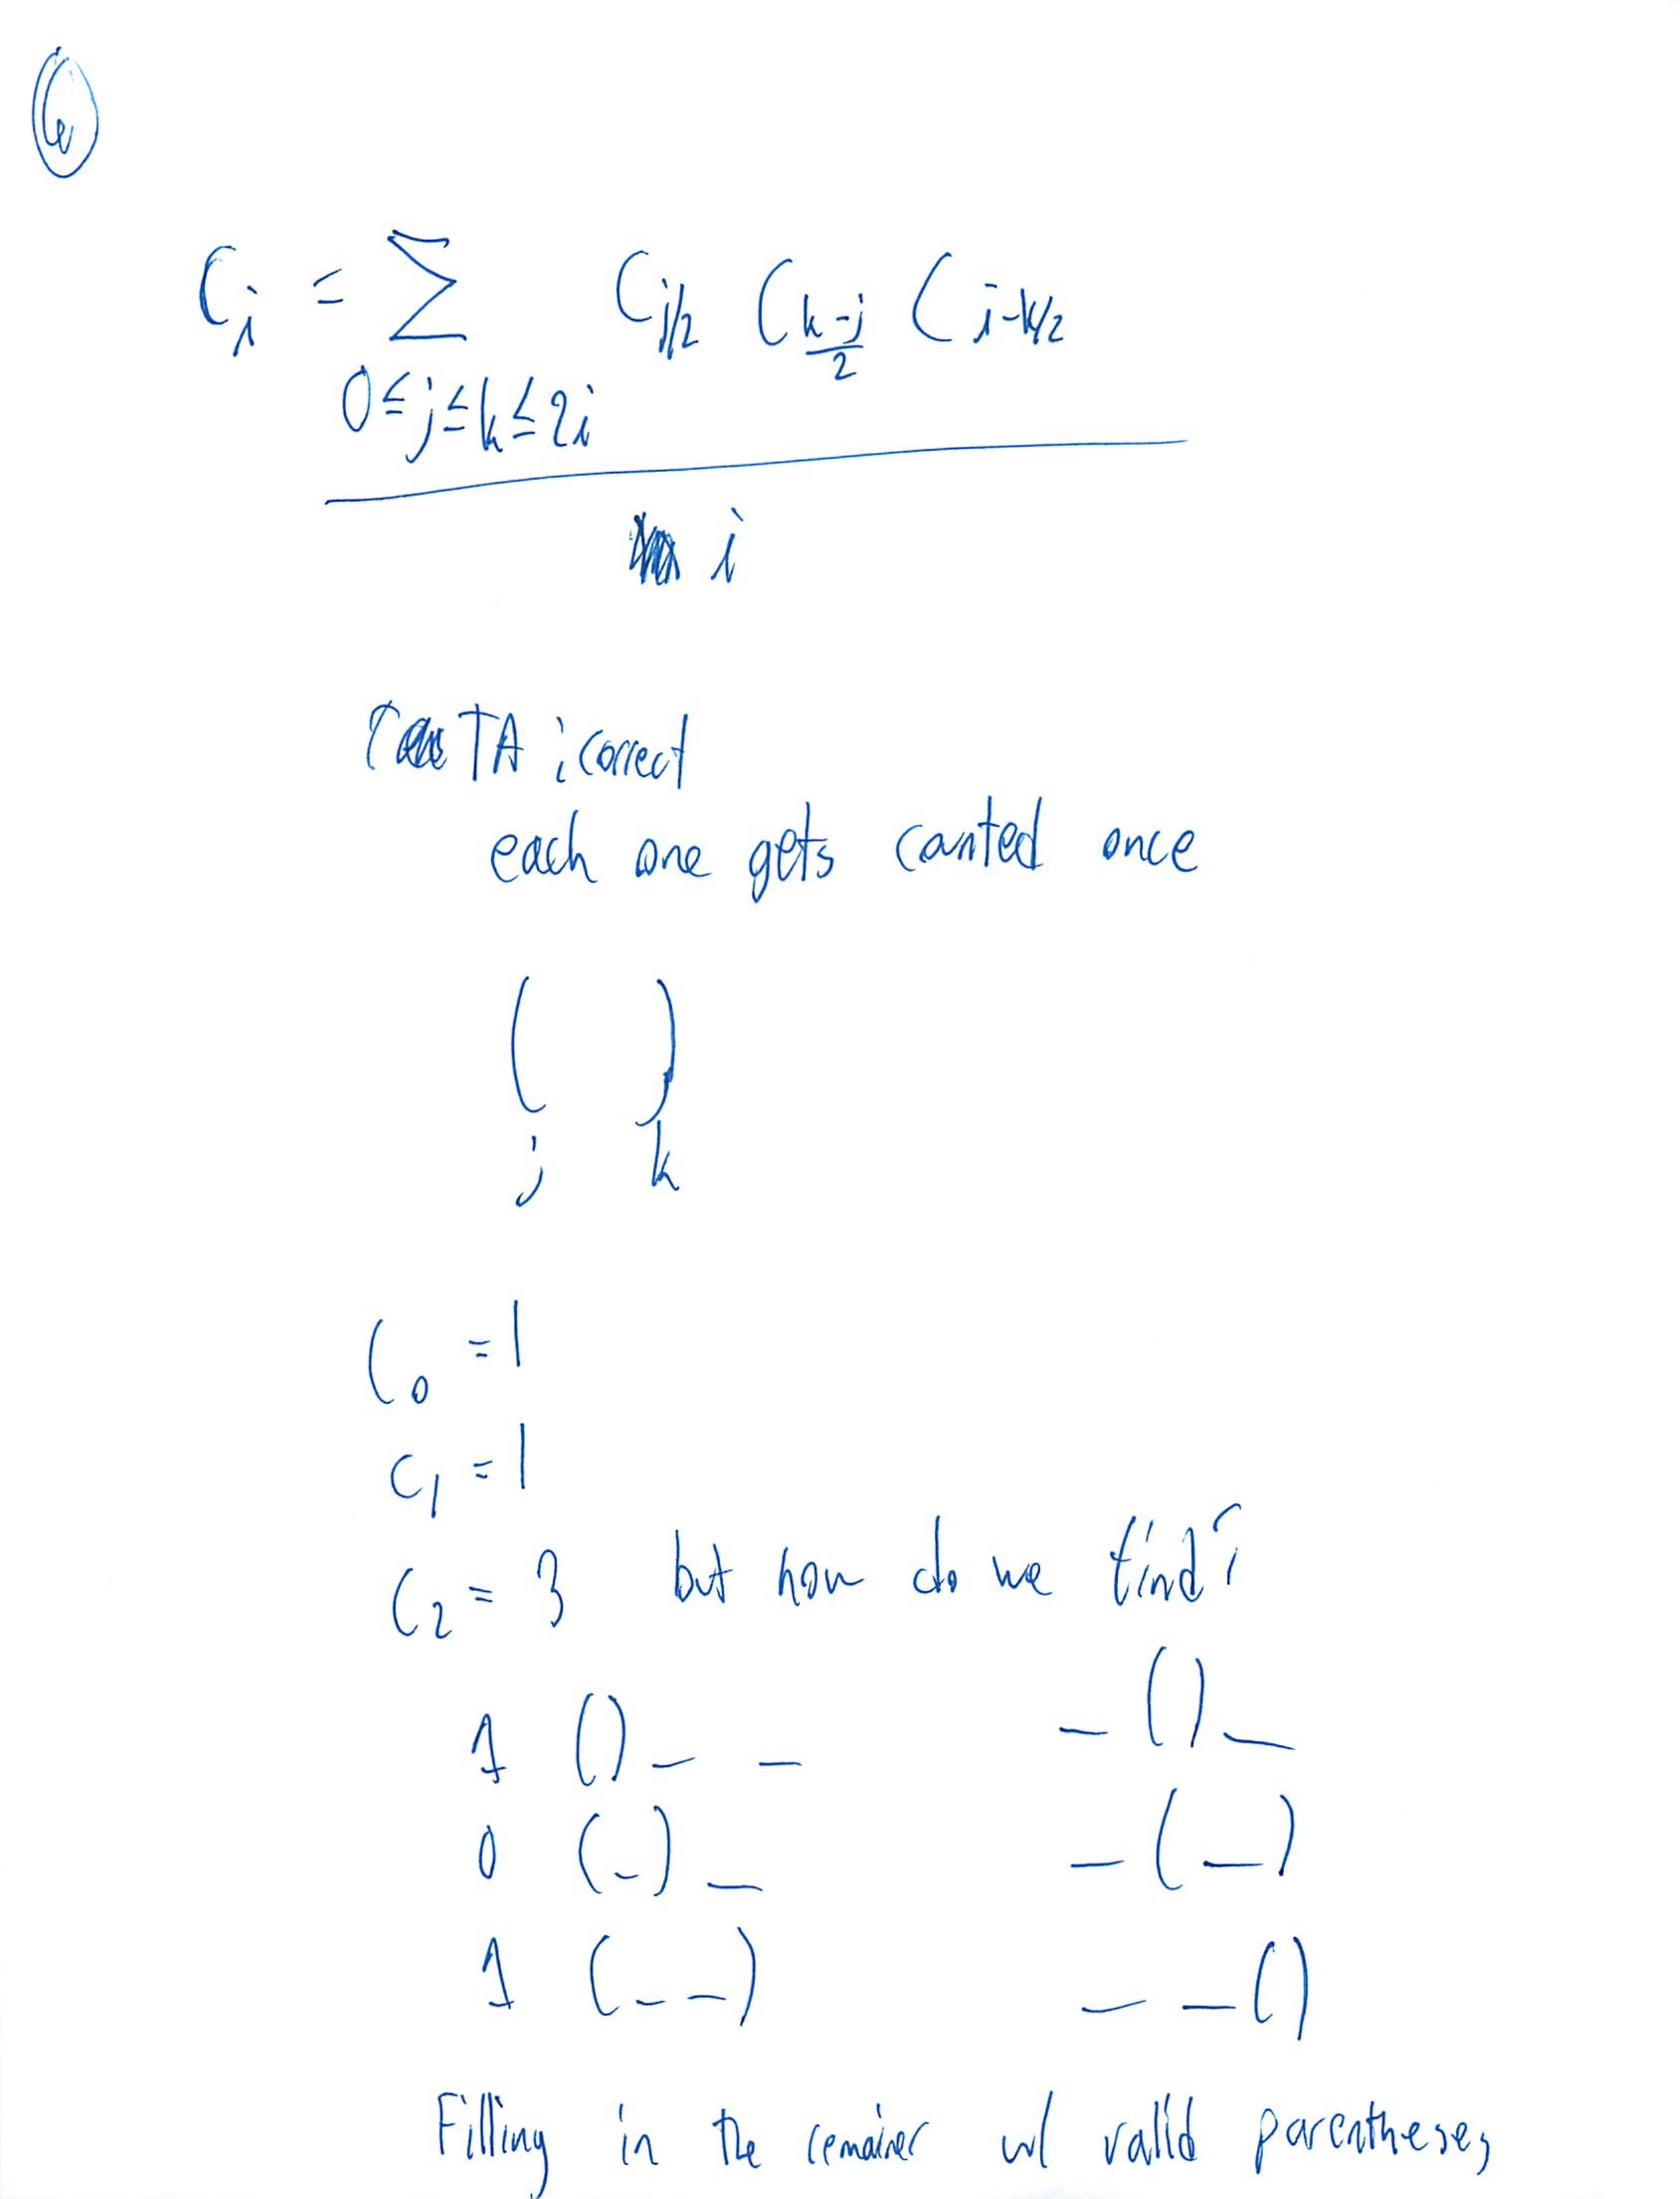 6
C_i = Σ C_{j/2} C_{\frac{k-j}{2}} C_{i-k/2}
0≤j≤k≤2i
i
TA icorrect
each one gets counted once
( )
j k
C_0 = 1
C_1 = 1
C_2 = 3 but how do we find?
1 () _ _ _ () _
0 (_) _ _ (_)
1 (_ _) _ _ ()
Filling in the remainer w/ valid parentheses